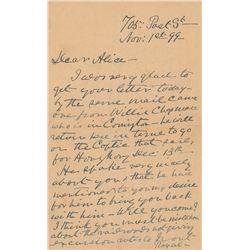 705 Post St
Nov: 1st 99.
Dear Alice-
I was very glad to
get your letter today-
by the same mail came
one from Willie Chapman
who is in Covington - he will
return here in time to go
on the Coptic that sails
for Hong Kong Dec 13th
He spoke very nicely
about you & that he has
mentioned to you my desire
for him to bring you back
with him - Will you come?
I think you must be mistaken
about the railroads not giving
excursion rates to